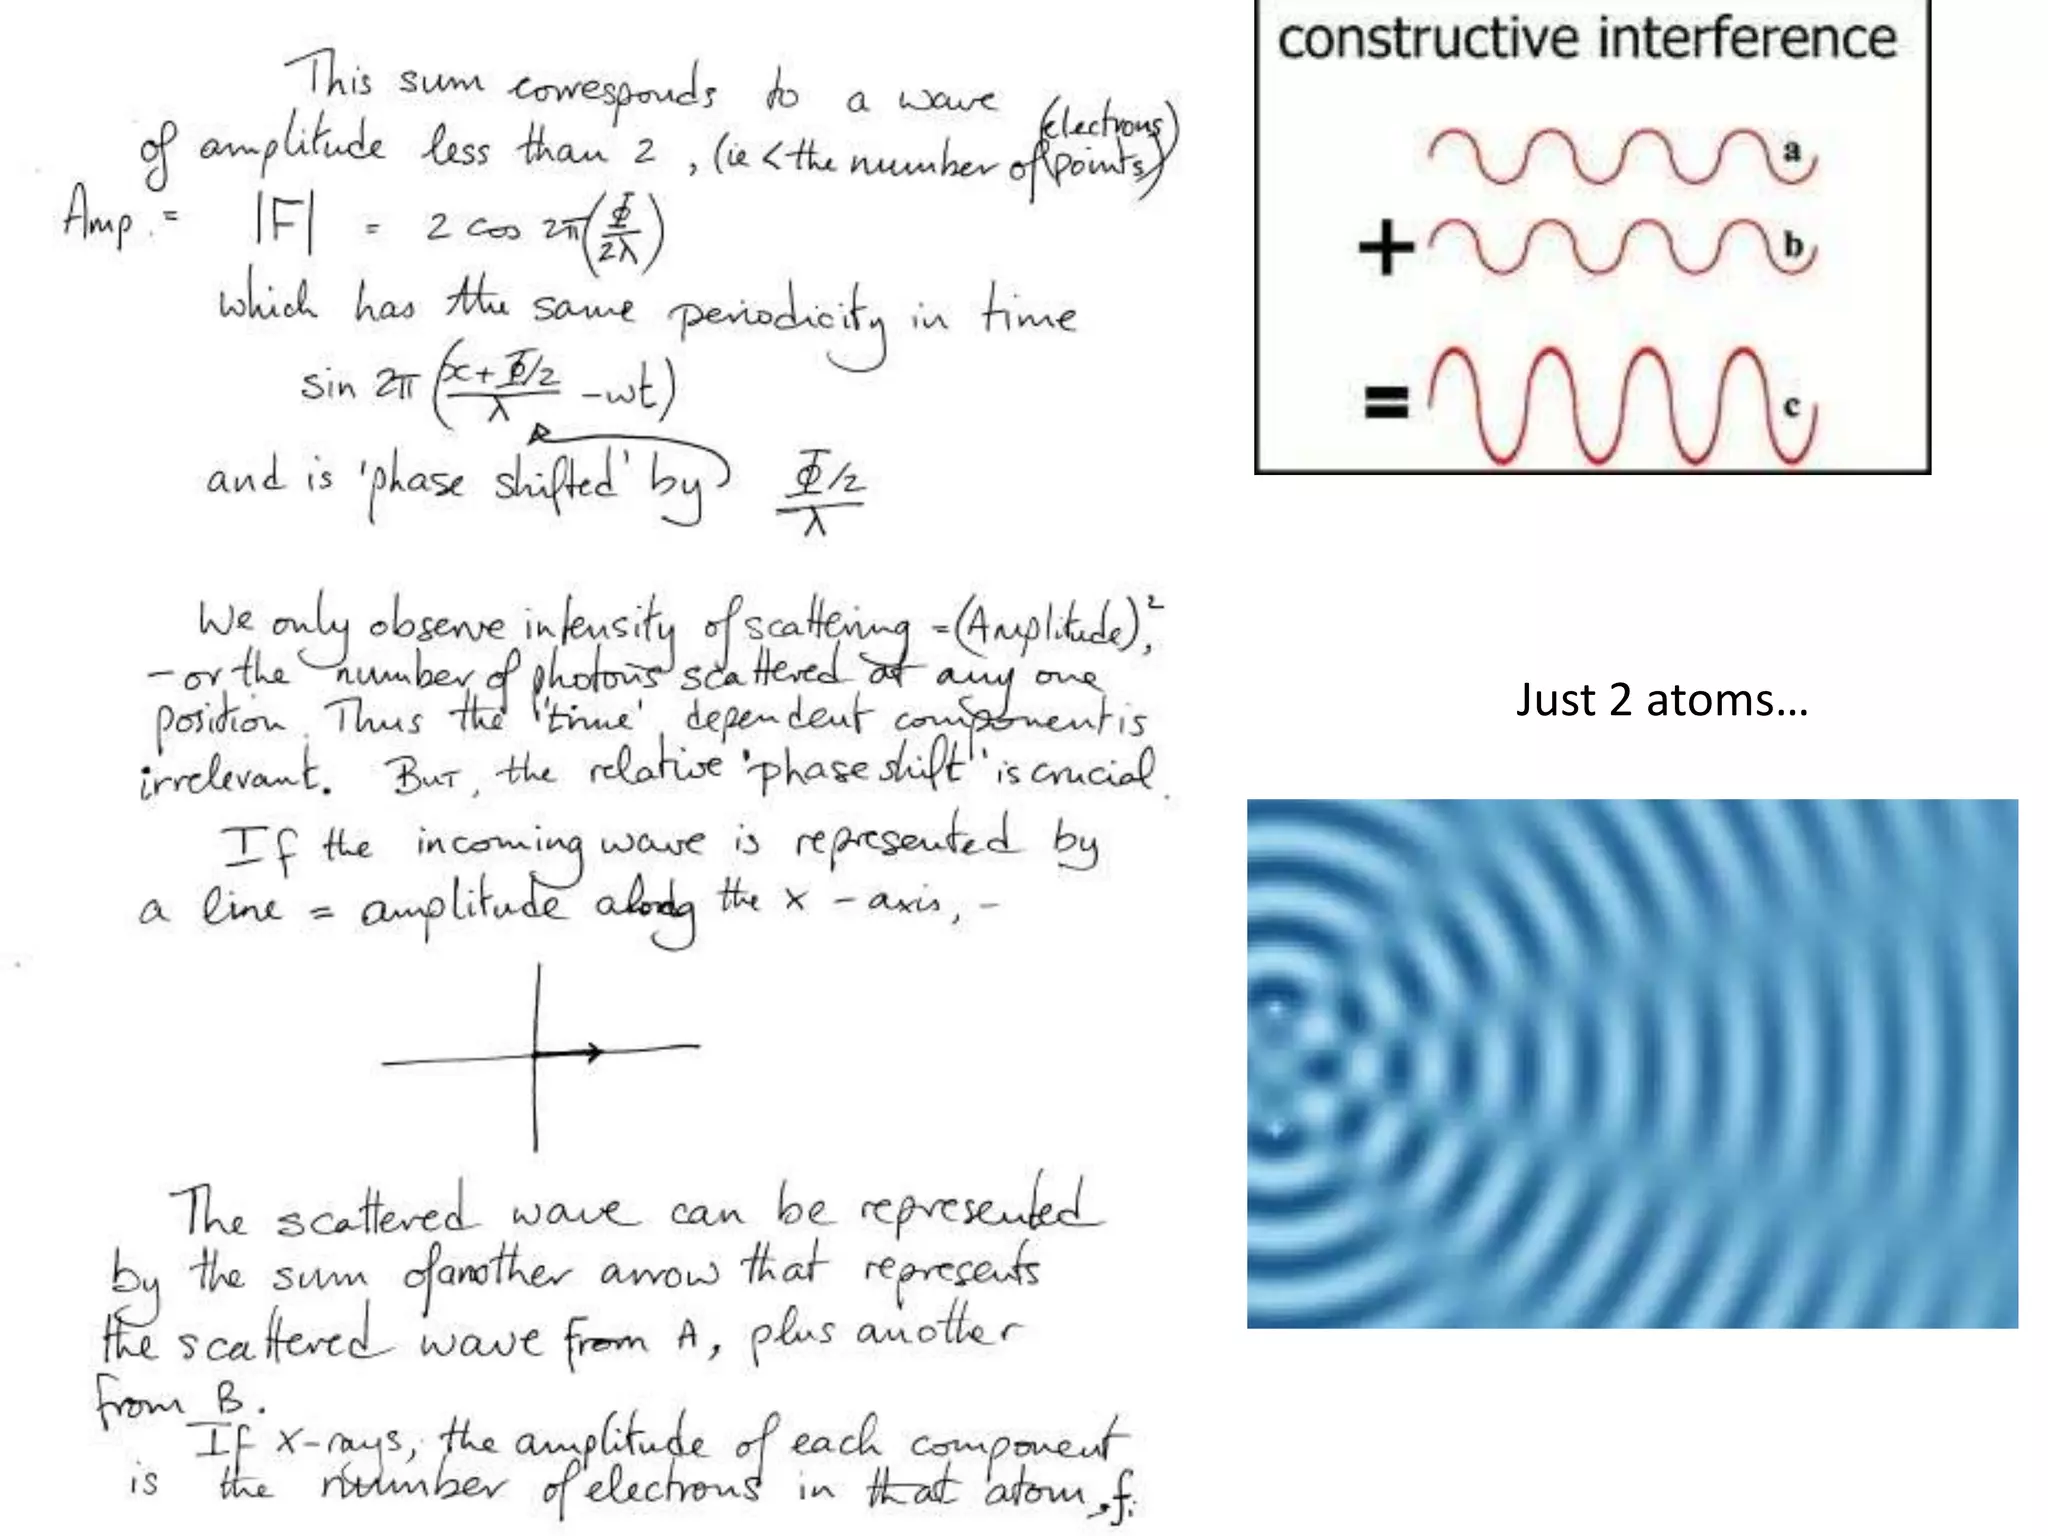 This sum corresponds to a wave
of amplitude less than 2, (ie < the number of (electrons) points)
Amp. = |F| = 2 cos 2π(Φ/2λ)
which has the same periodicity in time
sin 2π (x+Φ/2 / λ - wt)
and is 'phase shifted' by Φ/2 / λ
We only observe intensity of scattering = (Amplitude)²,
- or the number of photons scattered at any one
position. Thus the 'time' dependent component is
irrelevant. BUT, the relative 'phase shift' is crucial.
If the incoming wave is represented by
a line = amplitude along the x - axis, -
The scattered wave can be represented
by the sum of another arrow that represents
the scattered wave from A, plus another
from B.
If X-rays, the amplitude of each component
is the number of electrons in that atom, fi
constructive interference
a
+ b
= c
Just 2 atoms…